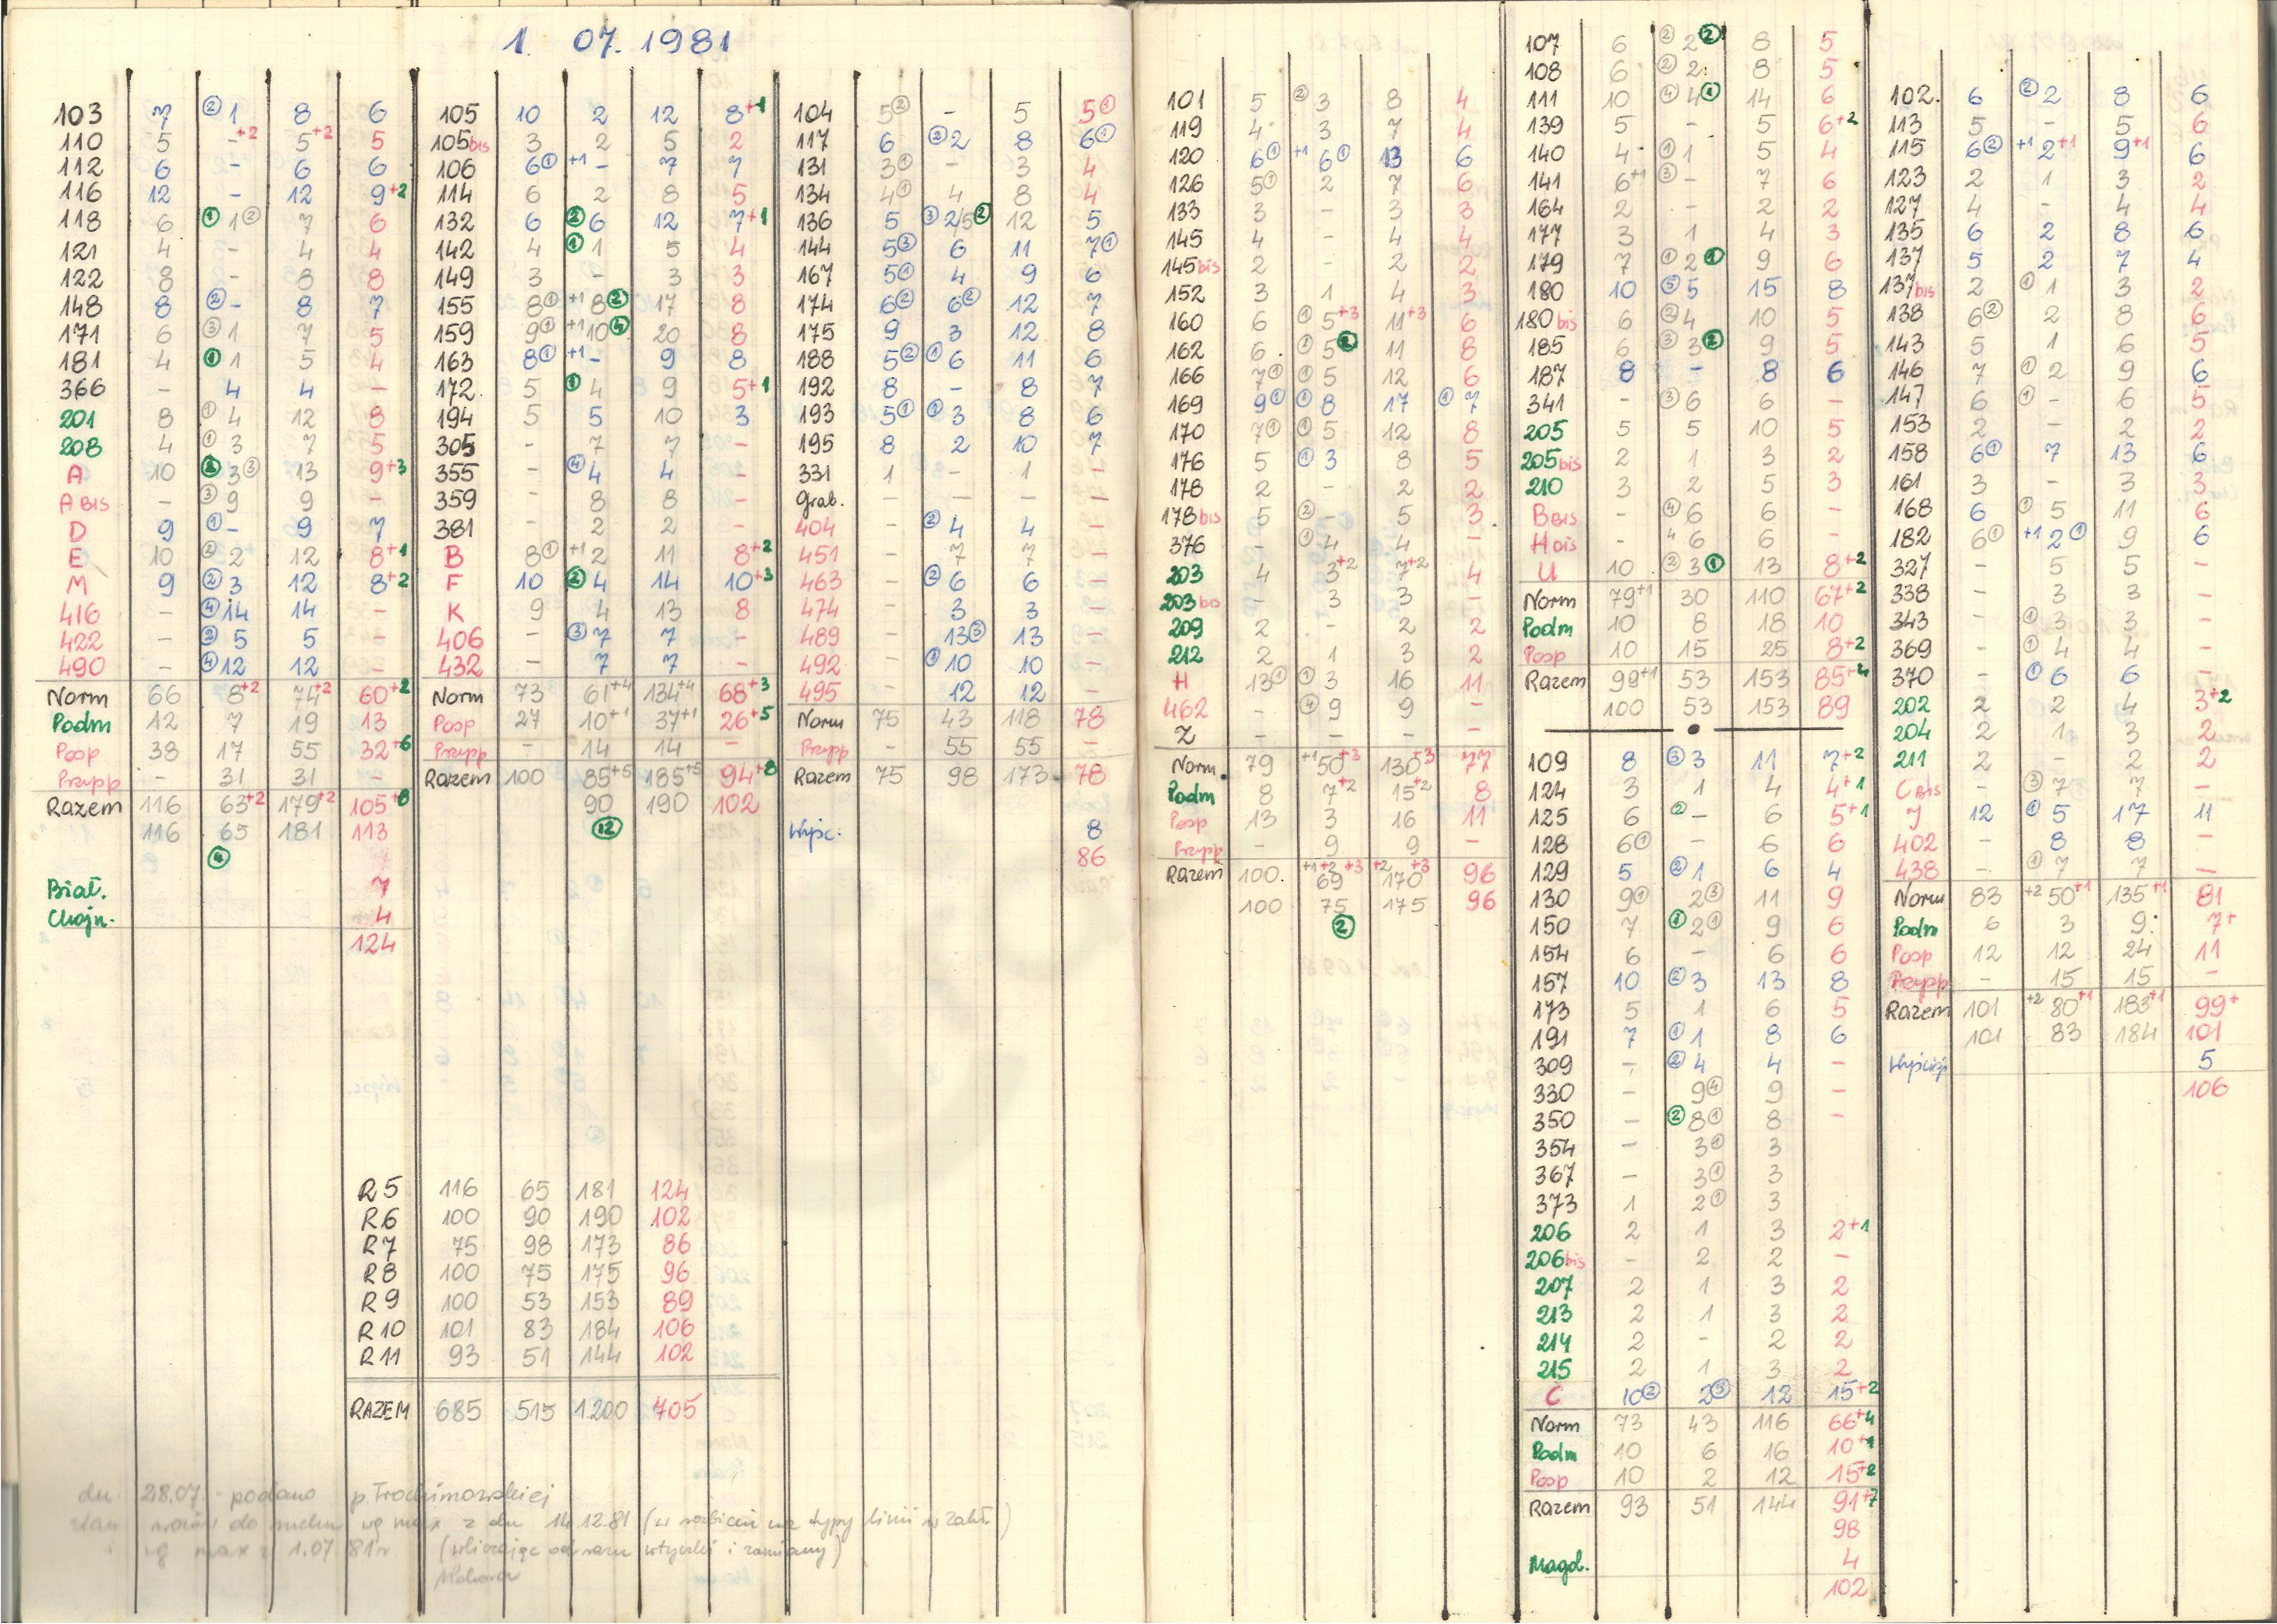 1. 07. 1981
103 7 ② 1 8 6
110 5 - +2 5 +2 5
112 6 - 6 6
116 12 - 12 9 +2
118 6 ① 1 ② 7 6
121 4 - 4 4
122 8 - 8 8
148 8 ② - 8 7
171 6 ③ 1 7 5
181 4 ① 1 5 4
366 - 4 4 -
201 8 ① 4 12 8
208 4 ① 3 7 5
A 10 ② 3 ③ 13 9 +3
A BIS - ③ 9 9 -
D 9 ① - 9 7
E 10 ② 2 12 8 +1
M 9 ② 3 12 8 +2
416 - ④ 14 14 -
422 - ② 5 5 -
490 - ④ 12 12 -
Norm 66 8 +2 74 +2 60 +2
Podm 12 7 19 13
Posp 38 17 55 32 +6
Przypp - 31 31 -
Razem 116 63 +2 179 +2 105 +8
116 65 181 113
④
Biał. 7
Chojn. 4
124
105 10 2 12 8 +1
105 bis 3 2 5 2
106 6 ① +1 - 7 7
114 6 2 8 5
132 6 ② 6 12 7 +1
142 4 ① 1 5 4
149 3 - 3 3
155 8 ① +1 8 ② 17 8
159 9 ① +1 10 ④ 20 8
163 8 ① +1 - 9 8
172 5 ① 4 9 5 +1
194 5 5 10 3
305 - 7 7 -
355 - ④ 4 4 -
359 - 8 8 -
381 - 2 2 -
B 8 ① +1 2 11 8 +2
F 10 ② 4 14 10 +3
K 9 4 13 8
406 - ③ 7 7 -
432 - 7 7 -
Norm 73 61 +4 134 +4 68 +3
Posp 27 10 +1 37 +1 26 +5
Przypp - 14 14 -
Razem 100 85 +5 185 +5 94 +8
90 190 102
⑫
104 5 ② - 5 5 ①
117 6 ② 2 8 6 ①
131 3 ① - 3 4
134 4 ① 4 8 4
136 5 ③ 2/5 ② 12 5
144 5 ③ 6 11 7 ①
167 5 ① 4 9 6
174 6 ② 6 ② 12 7
175 9 3 12 8
188 5 ② ① 6 11 6
192 8 - 8 7
193 5 ① ① 3 8 6
195 8 2 10 7
331 1 - 1 -
Grab. - - - -
404 ② 4 4 -
451 - 7 7 -
463 - ② 6 6 -
474 - 3 3 -
489 - 13 ③ 13 -
492 - ① 10 10 -
495 12 12 -
Norm 75 43 118 78
Przypp - 55 55 -
Razem 75 98 173 78
Wyśc. 8
86
R5 116 65 181 124
R6 100 90 190 102
R7 75 98 173 86
R8 100 75 175 96
R9 100 53 153 89
R10 101 83 184 106
R11 93 51 144 102
RAZEM 685 515 1.200 705
dn 28.07. - podano p. Trochimowskiej
stan wozów do ruchu wg max z dn 14.12.81 (w rozbiciu na typy linii w zakł.)
i wg max z 1.07.81r (wliczając od razu wtyczki i zamiany)
101 5 ② 3 8 4
119 4 3 7 4
120 6 ① +1 6 ① 13 6
126 5 ① 2 7 6
133 3 - 3 3
145 4 - 4 4
145 bis 2 - 2 2
152 3 1 4 3
160 6 ① 5 +3 11 +3 6
162 6 ① 5 ② 11 8
166 7 ① ① 5 12 6
169 9 ① ① 8 17 ① 7
170 7 ① ① 5 12 8
176 5 ① 3 8 5
178 2 - 2 2
178 bis 5 ② - 5 3
376 - ① 4 4 -
203 4 3 +2 7 +2 4
203 bis - 3 3 -
209 2 - 2 2
212 2 1 3 2
H 13 ① ① 3 16 11
462 - ④ 9 9 -
Z - - - -
Norm. 79 +1 50 +3 130 +3 77
Podm 8 7 +2 15 +2 8
Posp 13 3 16 11
Przypp - 9 9 -
Razem 100. +1 +2 69 +3 +2 170 +3 96
100 75 175 96
②
107 6 ② 2 ② 8 5
108 6 ② 2 8 5
111 10 ④ 4 ① 14 6
139 5 - 5 6 +2
140 4 ① 1 5 4
141 6 +1 ③ - 7 6
164 2 - 2 2
177 3 1 4 3
179 7 ① 2 ① 9 6
180 10 ⑤ 5 15 8
180 bis 6 ② 4 10 5
185 6 ③ 3 ② 9 5
187 8 - 8 6
341 - ③ 6 6 -
205 5 5 10 5
205 bis 2 1 3 2
210 3 2 5 3
B BIS - ④ 6 6 -
H bis - 4 6 6 -
U 10 ② 3 ① 13 8 +2
Norm 79 +1 30 110 67 +2
Podm 10 8 18 10
Posp 10 15 25 8 +2
Razem 99 +1 53 153 85 +4
100 53 153 89
109 8 ③ 3 11 7 +2
124 3 1 4 4 +1
125 6 ② - 6 5 +1
128 6 ① - 6 6
129 5 ② 1 6 4
130 9 ① 2 ③ 11 9
150 7 ① 2 ① 9 6
154 6 - 6 6
157 10 ② 3 13 8
173 5 1 6 5
191 7 ① 1 8 6
309 - ② 4 4 -
330 - 9 ④ 9 -
350 - ② 8 ① 8 -
354 - 3 ① 3
367 - 3 ① 3
373 1 2 ① 3
206 2 1 3 2 +1
206 bis - 2 2 -
207 2 1 3 2
213 2 1 3 2
214 2 - 2 2
215 2 1 3 2
C 10 ② 2 ③ 12 15 +2
Norm 73 43 116 66 +4
Podm 10 6 16 10 +1
Posp 10 2 12 15 +2
Razem 93 51 144 91 +7
98
Magd. 4
102
102. 6 ② 2 8 6
113 5 - 5 6
115 6 ② +1 2 +1 9 +1 6
123 2 1 3 2
127 4 - 4 4
135 6 2 8 6
137 5 2 7 4
137 bis 2 ① 1 3 2
138 6 ② 2 8 6
143 5 1 6 5
146 7 ① 2 9 6
147 6 ① - 6 5
153 2 - 2 2
158 6 ① 7 13 6
161 3 - 3 3
168 6 ① 5 11 6
182 6 ① +1 2 ① 9 6
327 - 5 5 -
338 - 3 3 -
343 - ① 3 3 -
369 - ① 4 4 -
370 - ① 6 6 -
202 2 2 4 3 +2
204 2 1 3 2
211 2 - 2 2
C BIS - ③ 7 7 -
J 12 ① 5 17 11
402 - 8 8 -
438 - ① 7 7 -
Norm 83 +2 50 +1 135 +1 81
Podm 6 3 9 7 +
Posp 12 12 24 11
Przypp - 15 15 -
Razem 101 +2 80 +1 183 +1 99 +
101 83 184 101
Wyścigi 5
106